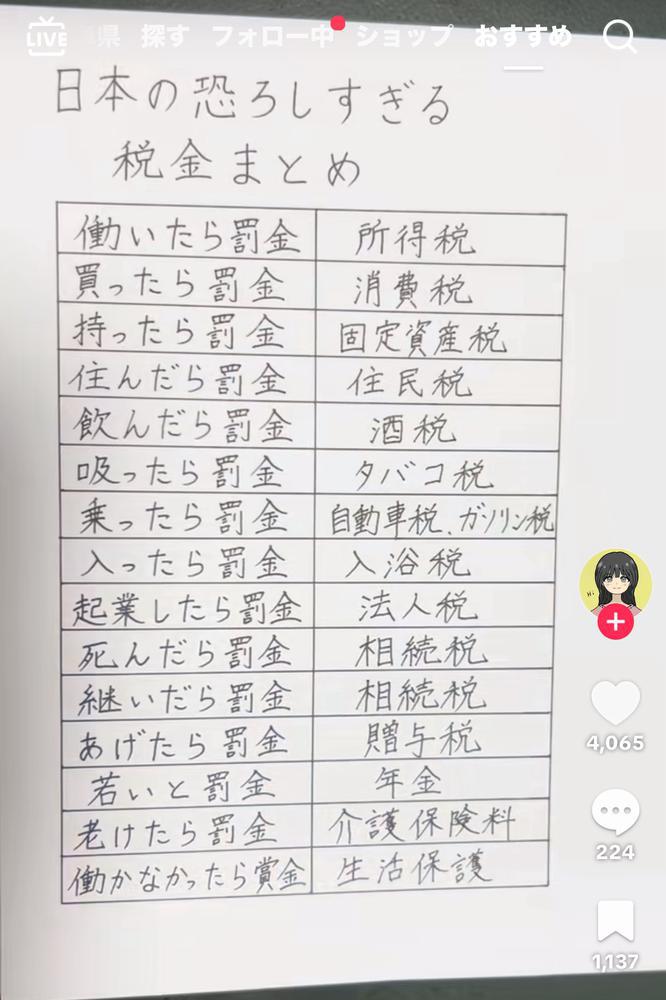 LIVE 県 探す フォロー中 ショップ おすすめ
日本の恐ろしすぎる
税金まとめ
働いたら罰金 所得税
買ったら罰金 消費税
持ったら罰金 固定資産税
住んだら罰金 住民税
飲んだら罰金 酒税
吸ったら罰金 タバコ税
乗ったら罰金 自動車税、ガソリン税
入ったら罰金 入浴税
起業したら罰金 法人税
死んだら罰金 相続税
継いだら罰金 相続税
あげたら罰金 贈与税
若いと罰金 年金
老けたら罰金 介護保険料
働かなかったら賞金 生活保護
Hi
4,065
224
1,137